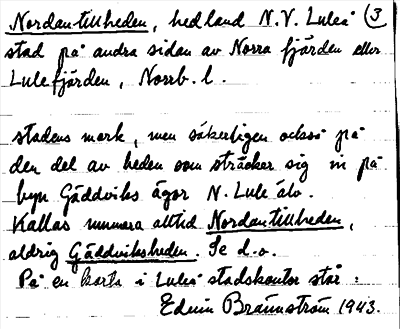 Nordantillheden, hedland N.V. Luleå (3
stad på andra sidan av Norra fjärden eller
Lulefjärden, Norrb. l.
stadens mark, men säkerligen också på
den del av heden som sträcker sig in på
byn Gäddviks ägor N. Lule älv.
Kallas numera alltid Nordantillheden,
aldrig Gäddviksheden. Se d.o.
På en karta i Luleå stadskontor står:
Edvin Brännström 1943.